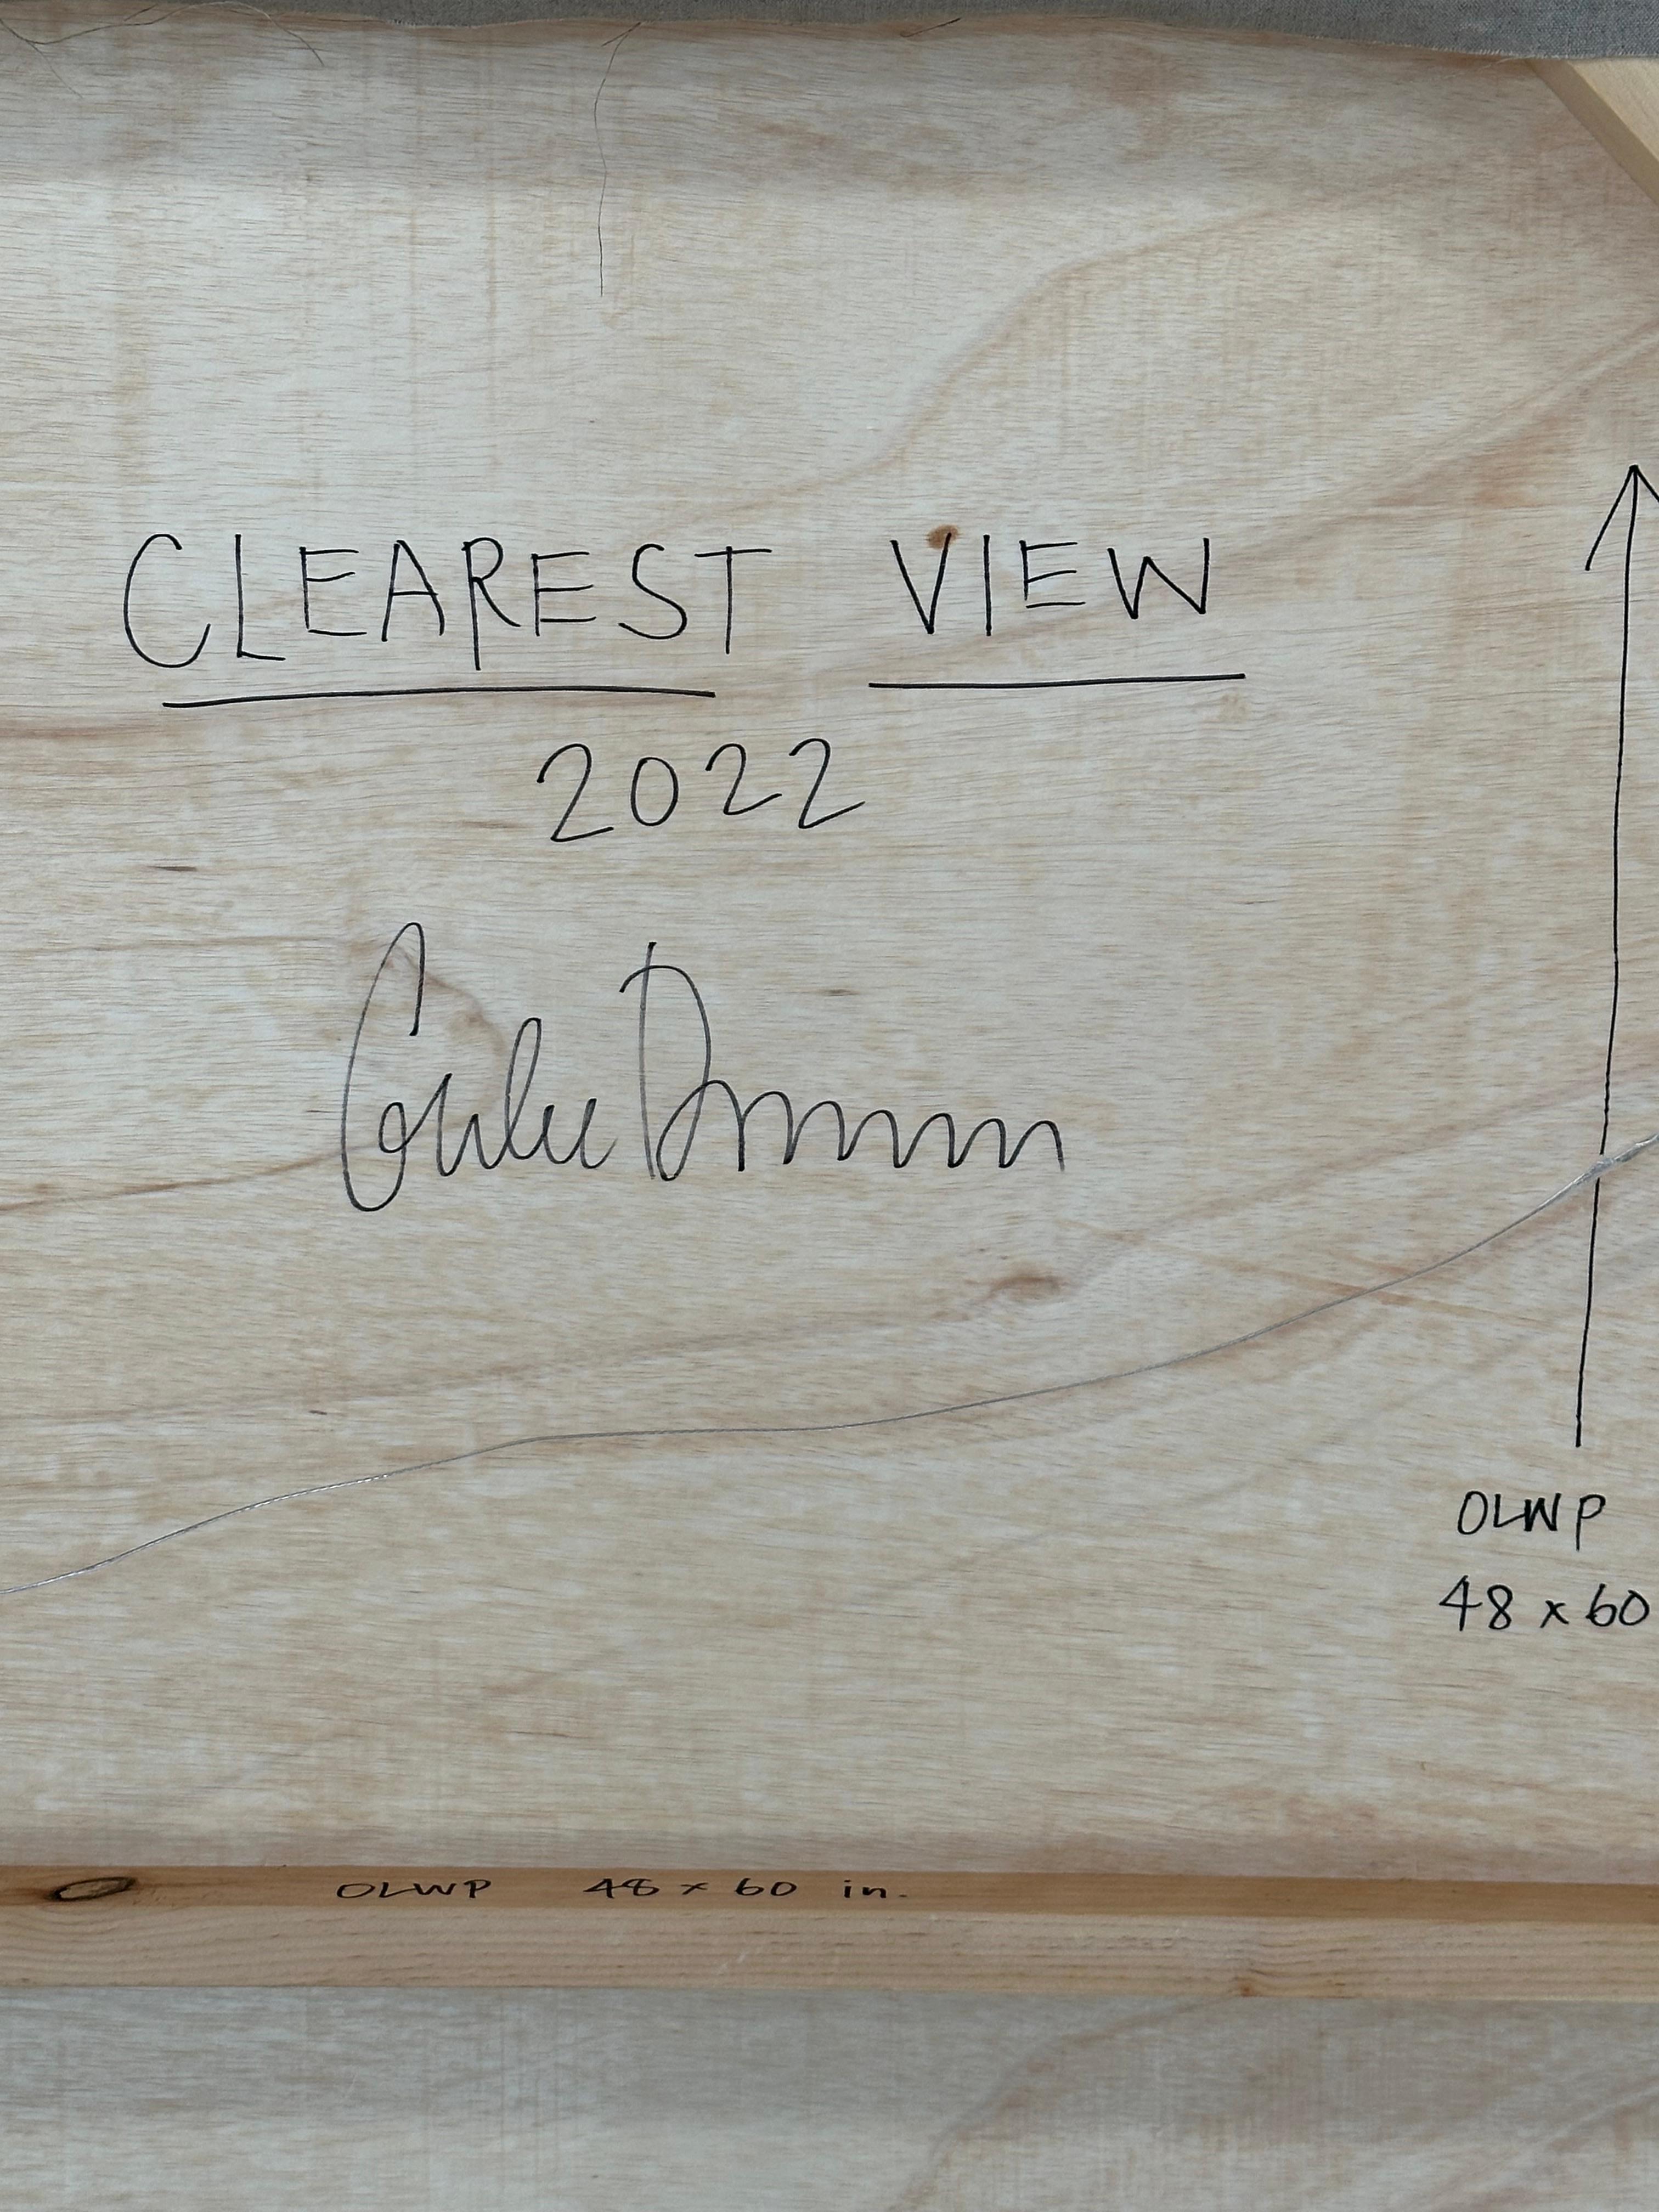 CLEAREST VIEW
2022
OLWP
48 x 60
OLWP 48 x 60 in.